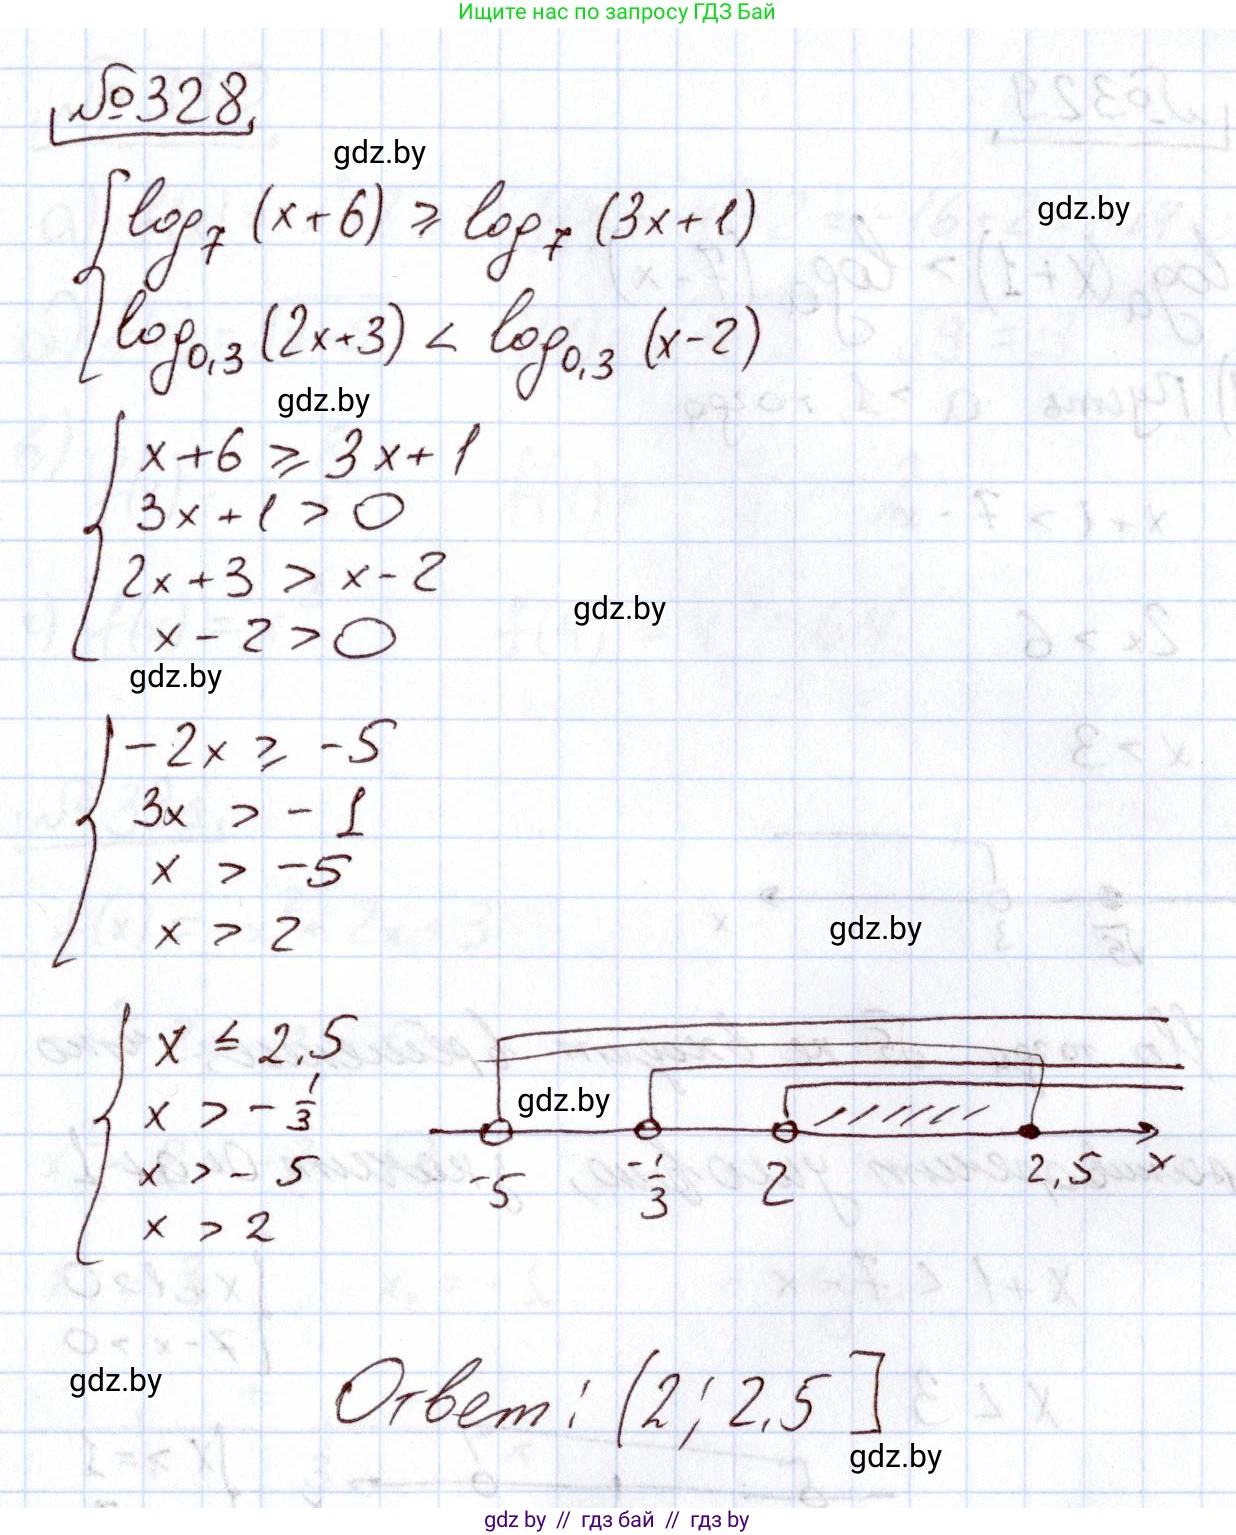 Ищите нас по запросу ГДЗ Бай
№328
gdz.by
gdz.by
log₇ (x+6) ⩾ log₇ (3x+1)
log₀,₃ (2x+3) < log₀,₃ (x-2)
gdz.by
x+6 ⩾ 3x+1
3x+1 > 0
2x+3 > x-2
gdz.by
x-2 > 0
gdz.by
-2x ⩾ -5
3x > -1
x > -5
x > 2
gdz.by
x ≤ 2,5
x > -1/3
x > -5
x > 2
gdz.by
-5 -1/3 2 2,5 x
gdz.by
Ответ: (2; 2,5]
gdz.by
gdz by // гдз бай // gdz by